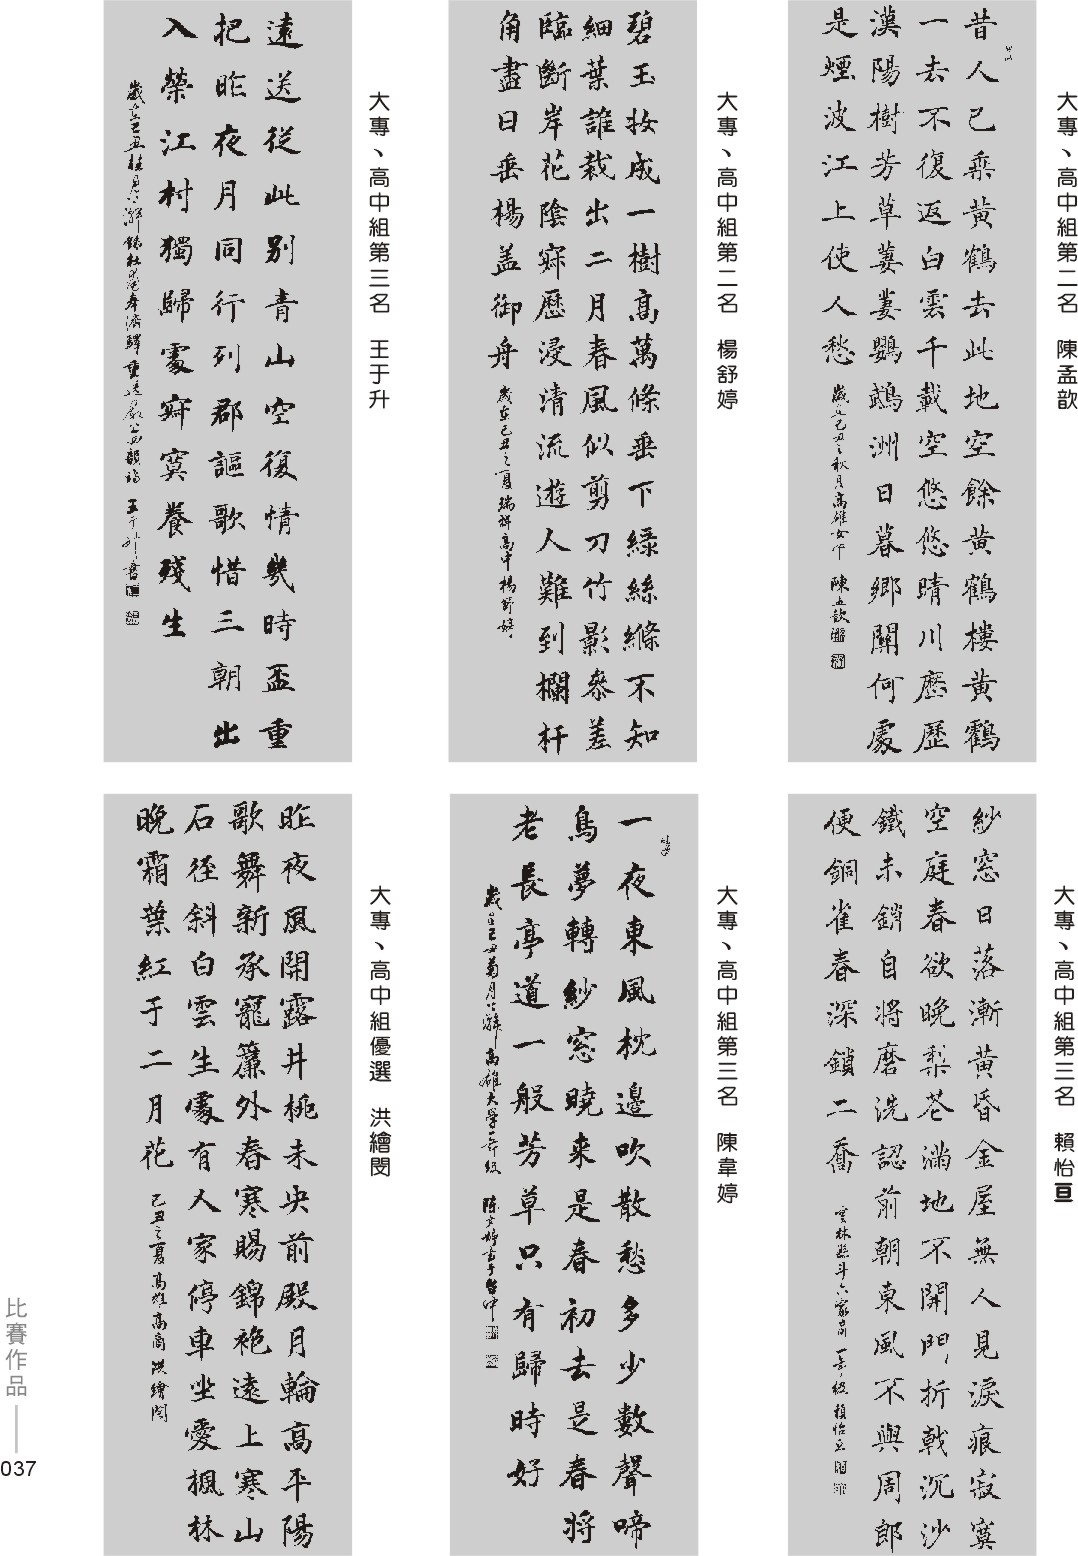 大專、高中組第二名　陳孟歆
昔人已乘黃鶴去此地空餘黃鶴樓黃鶴
一去不復返白雲千載空悠悠晴川歷歷
漢陽樹芳草萋萋鸚鵡洲日暮鄉關何處
是煙波江上使人愁
歲在己丑之秋月高雄女中　陳孟歆
大專、高中組第二名　楊舒婷
碧玉妝成一樹高萬條垂下綠絲絛不知
細葉誰裁出二月春風似剪刀竹影參差
臨斷岸花陰寂歷浸清流遊人難到欄杆
角盡日垂楊蓋御舟
歲在己丑之夏瑞祥高中楊舒婷
大專、高中組第三名　王于升
遠送從此別青山空復情幾時盃重
把昨夜月同行列郡謳歌惜三朝出
入榮江村獨歸處寂寞養殘生
歲在己丑桂月 錄杜甫奉濟驛重送嚴公四韻詩　王于升書
大專、高中組第三名　賴怡亘
紗窓日落漸黃昏金屋無人見淚痕寂寞
空庭春欲晚梨花滿地不開門折戟沉沙
鐵未銷自將磨洗認前朝東風不與周郎
便銅雀春深鎖二喬
雲林縣斗六家商一年級 賴怡亘
大專、高中組第三名　陳韋婷
一夜東風枕邊吹散愁多少數聲啼
鳥夢轉紗窓曉来是春初去是春將
老長亭道一般芳草只有歸時好
歲在己丑菊月 高雄大學一年級　陳韋婷書于台中
大專、高中組優選　洪繪閔
昨夜風開露井桃未央前殿月輪高平陽
歌舞新承寵簾外春寒賜錦袍遠上寒山
石徑斜白雲生處有人家停車坐愛楓林
晚霜葉紅于二月花
己丑之夏高雄高商洪繪閔
比賽作品
037